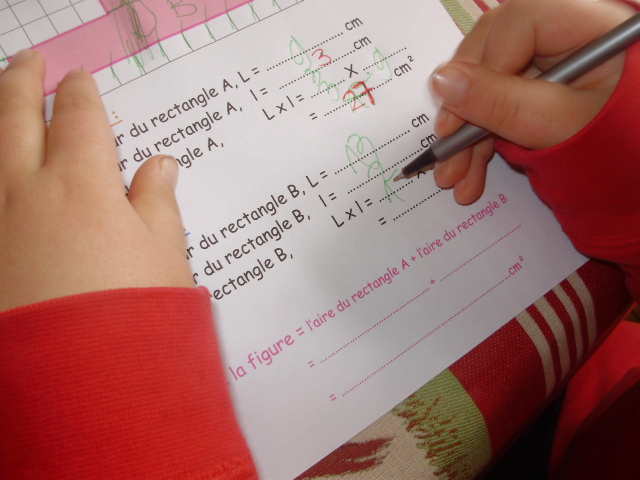 B
ur du rectangle A, L = .................... cm
ur du rectangle A, l = 3 cm
rectangle A, L x l = ........ x 9
= 27 cm²
ur du rectangle B, L = .................... cm
ur du rectangle B, l = .................... cm
rectangle B, L x l = ........ x
= ..........
la figure = l'aire du rectangle A + l'aire du rectangle B
= .............................. + ..............................
= .................................................. cm²